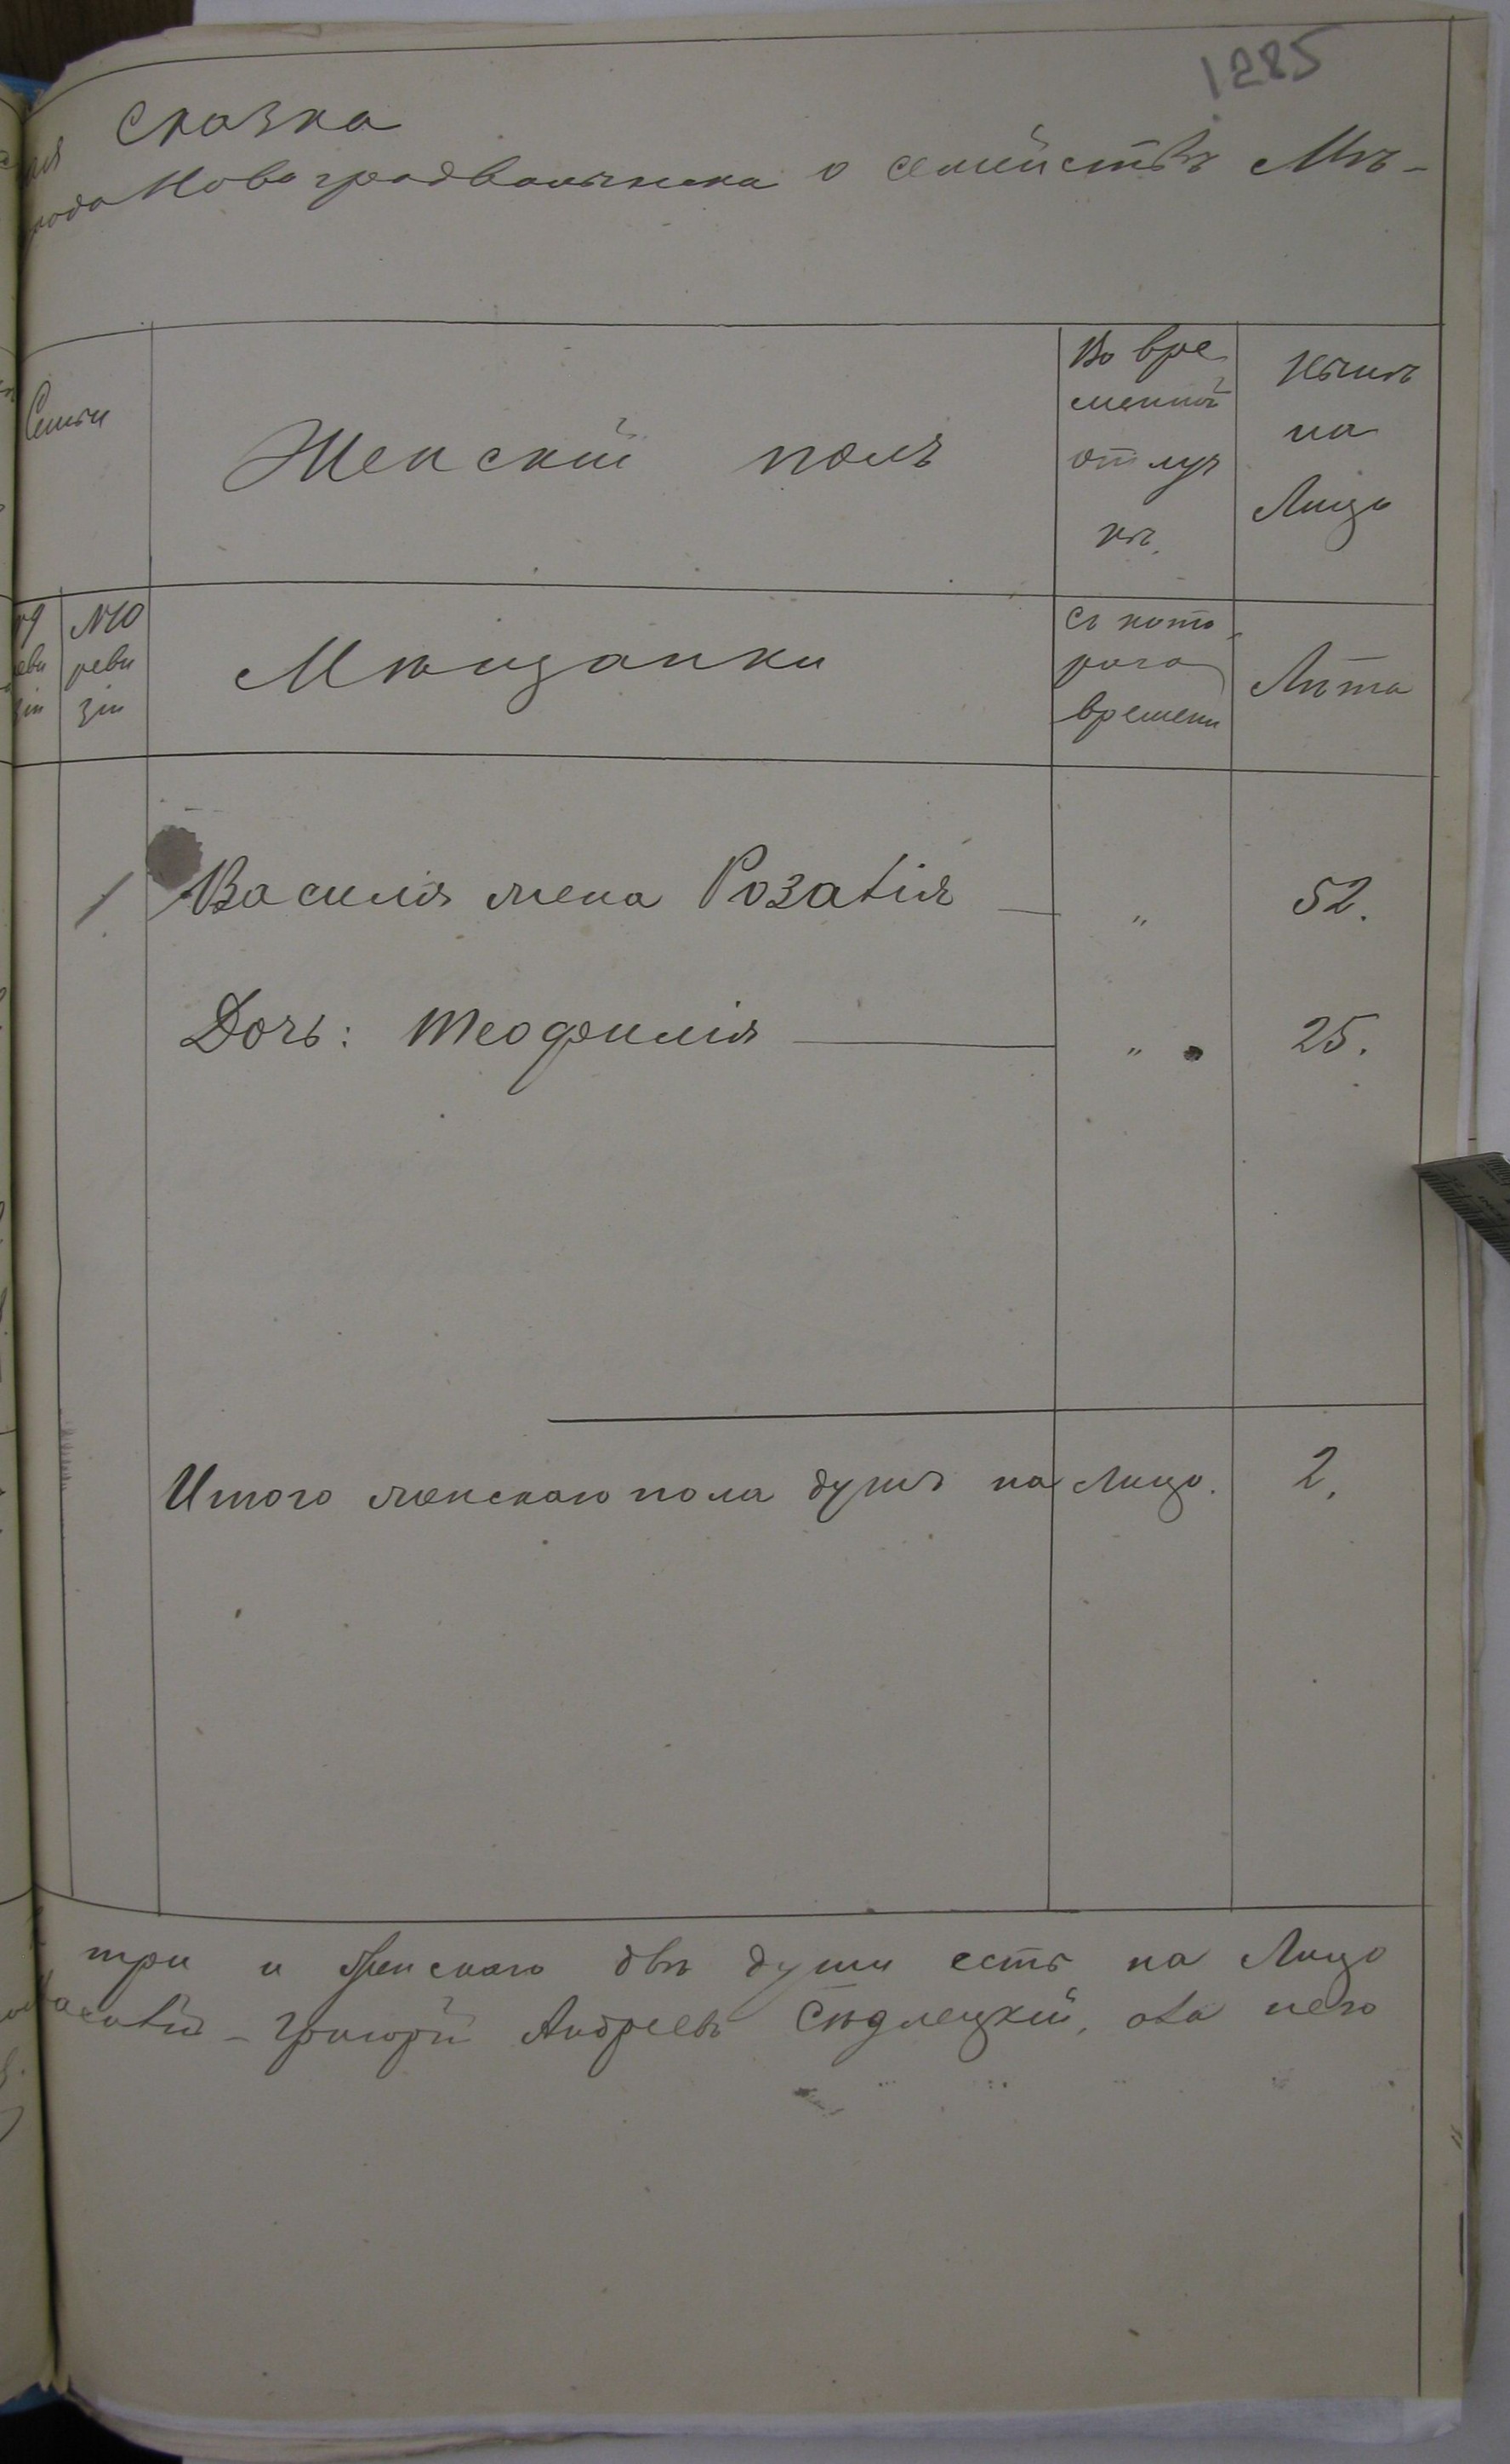 1285
Сказка
Новоградволынска о семействѣ Мѣ-
Семьи
Женскій полъ
Во вре
менной
отлуч
кѣ.
Нынѣ
на
Лицо
№10
реви
зіи
Мѣщанки
Съ кото
раго
времени
Лѣта
1. Василія жена Розалія — „ 52.
Дочь: Теофилія — „ 25.
Итого женскаго пола душъ на Лицо. 2.
три и женскаго двѣ души есть на Лицо
Григорій Андреевъ Сѣдлецкій, а за него